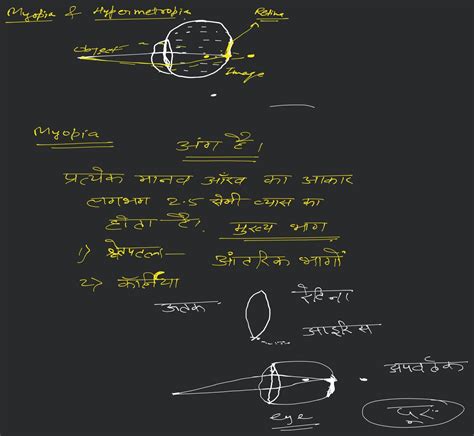 Myopia & Hypermetropia
Retina
object
Image
Myopia
अंग है।
प्रत्येक मानव आँख का आकार
लगभग 2.5 सेमी व्यास का
होता है। मुख्य भाग
1) श्वेतपटल— आंतरिक भागों
2) कॉर्निया
रेटिना
आइरिस
अपवर्तक
eye